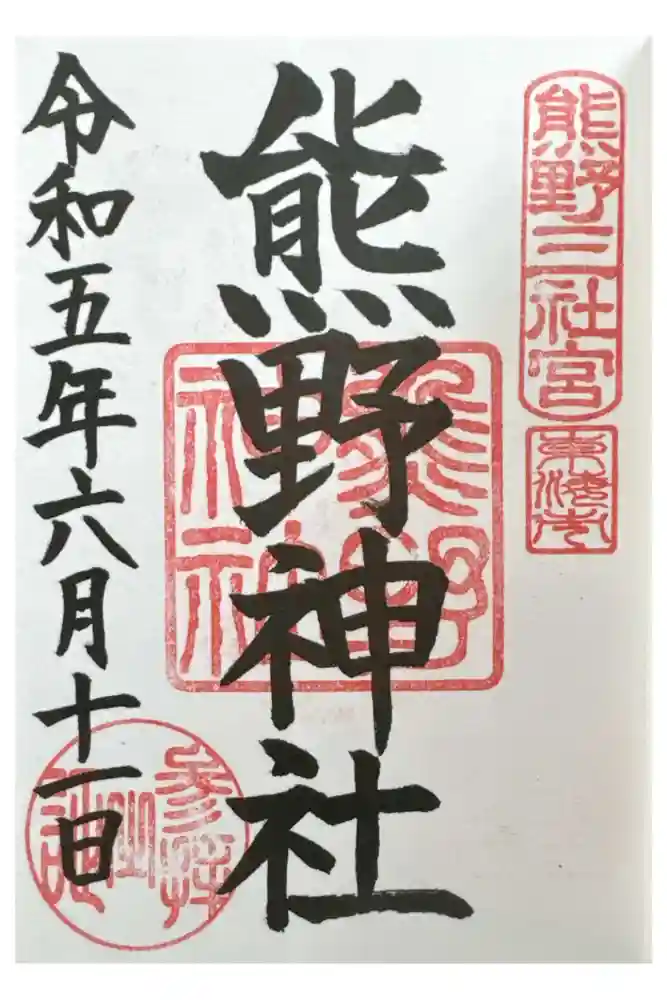 熊野三社宮
熊野神社
熊野
神社
令和五年六月十一日
参拝
之
証